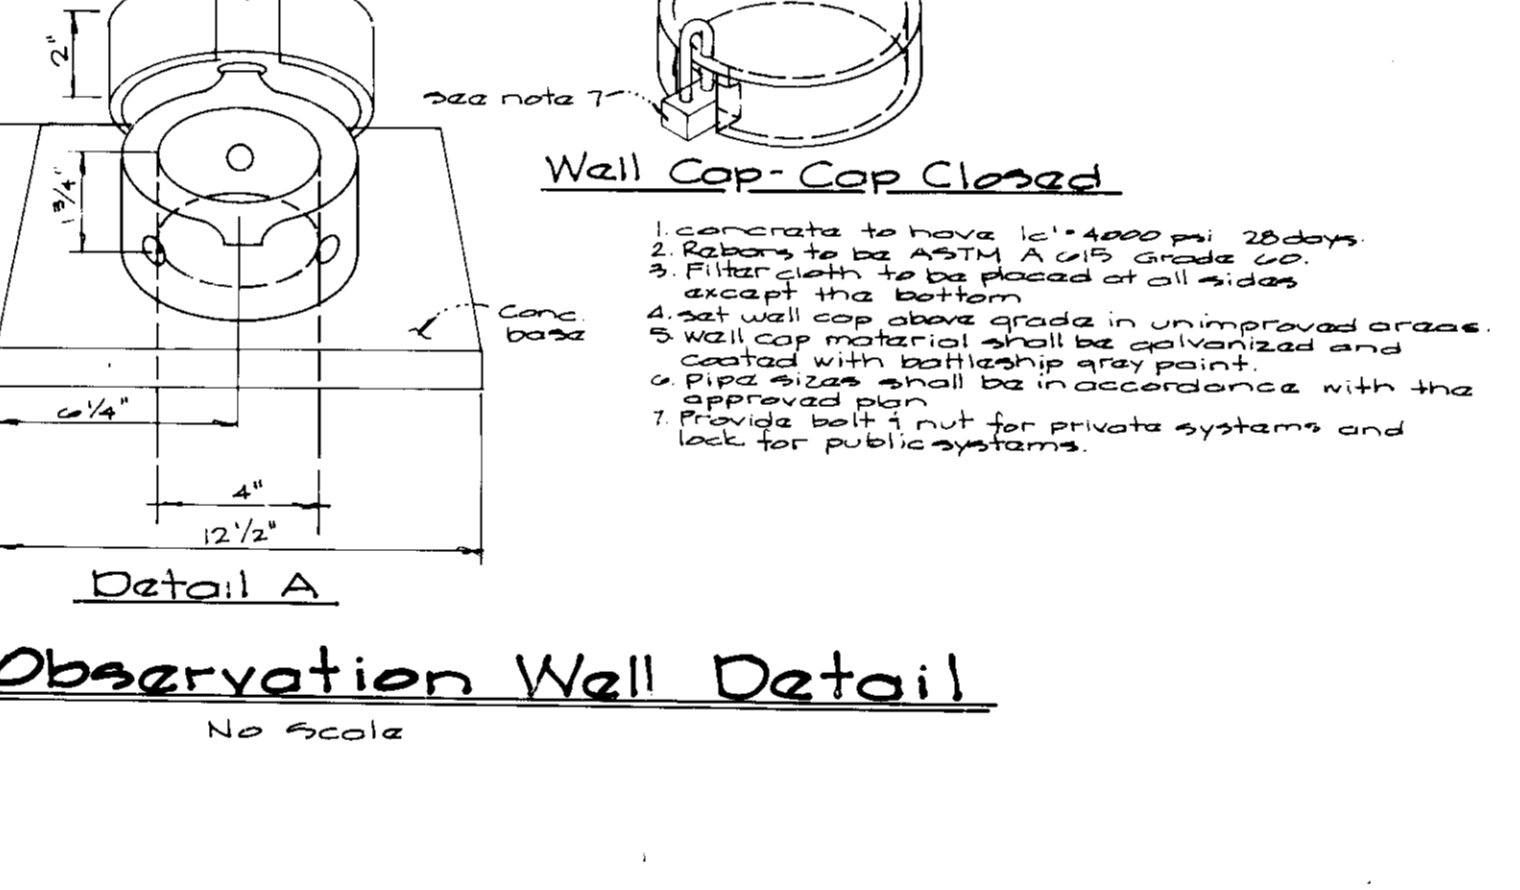 2"
see note 7
Well Cap - Cap Closed
1 3/4"
1. concrete to have fc' = 4000 psi 28 days.
2. Rebars to be ASTM A 615 Grade 60.
3. Filter cloth to be placed at all sides
except the bottom
4. set well cap above grade in unimproved areas.
5. well cap material shall be galvanized and
coated with battleship gray paint.
6. Pipe sizes shall be in accordance with the
approved plan
7. Provide bolt & nut for private systems and
lock for public systems.
conc.
base
6 1/4"
4"
12 1/2"
Detail A
Observation Well Detail
No Scale